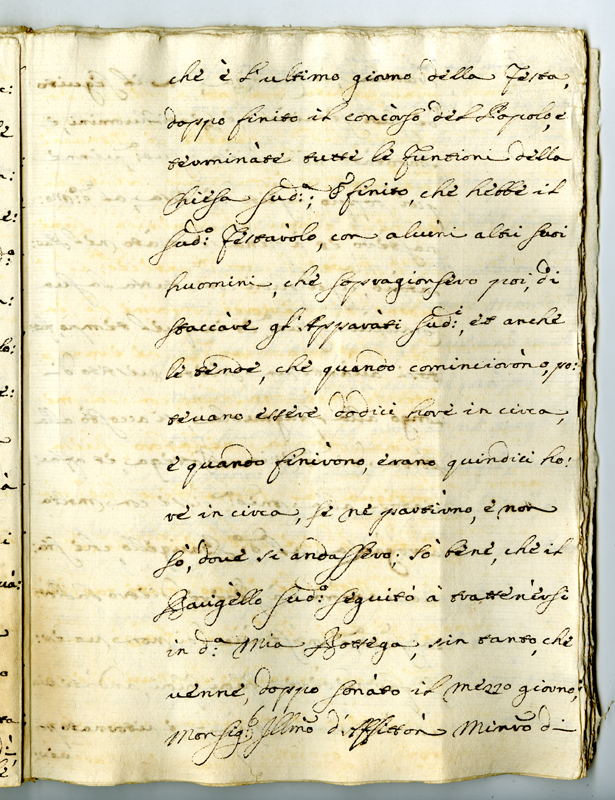 che è l'ultimo giorno della Festa,
doppo finito il concorso del Popolo, e
terminate tutte le funtioni della
Chiesa sud.ᵃ; E finito, che hebbe il
sud.º Festarolo, con alcuni altri suoi
huomini, che sopragionsero poi, di
staccàre gl'Apparàti sud.ⁱ, et anche
le tende, che quando comincioròno, po:
tevano essere dodici hore in circa,
e quando finirono, erano quindici ho:
re in circa, se ne partirno, e non
sò, dove si andassero; sò bene, che il
Barigèllo sud.º seguitò à trattenèrsi
in d.ᵃ mia Bottega, sin tanto, che
venne, doppo sonàto il mezzo giorno,
Monsig.ʳ Illmo di